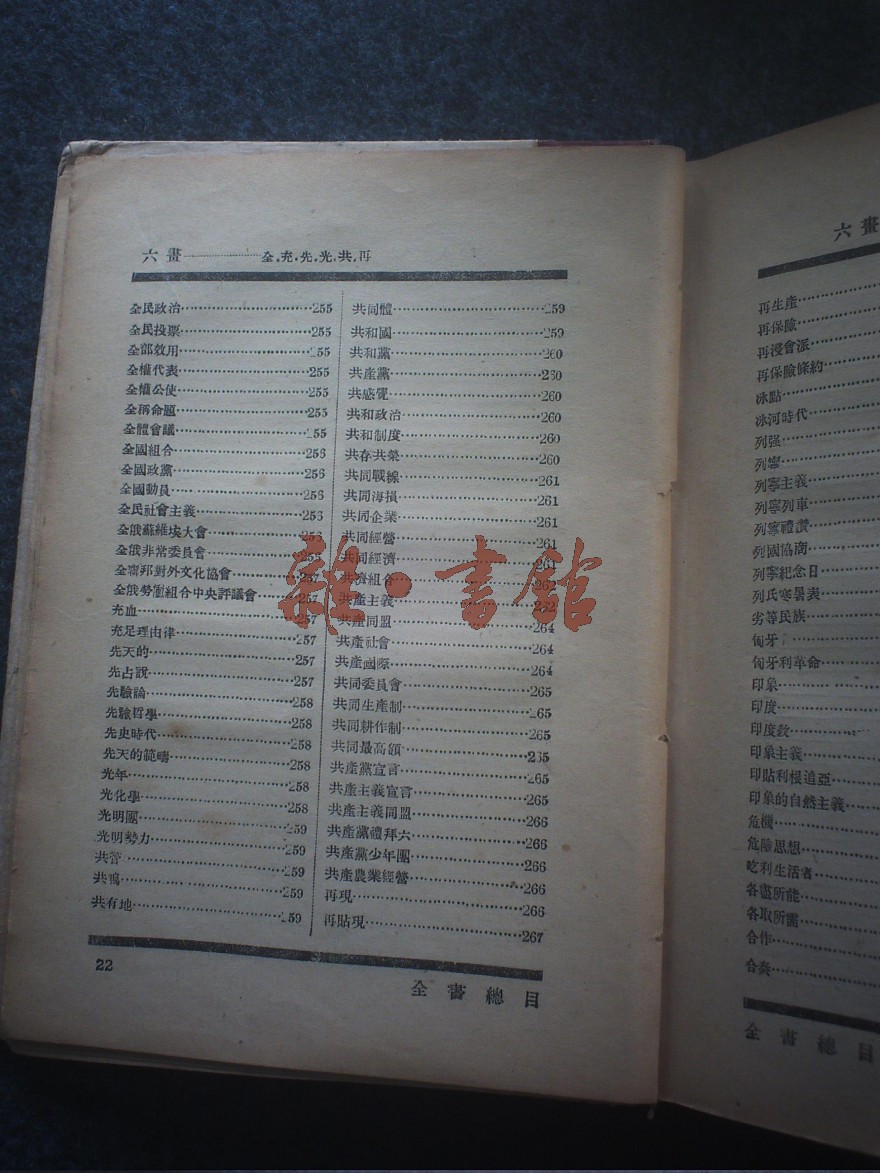 六畫…………全.充.先.光.共.再
全民政治…………255
全民投票…………255
全部效用…………255
全權代表…………255
全權公使…………255
全稱命題…………255
全體會議…………255
全國組合…………256
全國政黨…………256
全國動員…………256
全民社會主義…………256
全俄蘇維埃大會…………256
全俄非常委員會…………256
全蘇邦對外文化協會…………257
全俄勞働組合中央評議會…………257
充血…………257
充足理由律…………257
先天的…………257
先占說…………257
先驗論…………258
先驗哲學…………258
先史時代…………258
先天的範疇…………258
光年…………258
光化學…………258
光明團…………259
光明勢力…………259
共管…………259
共鳴…………259
共有地…………259
共同體…………259
共和國…………259
共和黨…………260
共產黨…………260
共感覺…………260
共和政治…………260
共和制度…………260
共存共榮…………260
共同戰線…………261
共同海損…………261
共同企業…………261
共同經營…………261
共同經濟…………261
共濟組合…………262
共產主義…………262
共產同盟…………264
共產社會…………264
共產國際…………264
共同委員會…………265
共同生產制…………265
共同耕作制…………265
共同最高額…………265
共產黨宣言…………265
共產主義宣言…………265
共產主義同盟…………266
共產黨禮拜六…………266
共產黨少年團…………266
共產農業經營…………266
再現…………266
再貼現…………267
22
全書總目
六畫
再生產…………
再保險…………
再浸會派…………
再保險條約…………
冰點…………
冰河時代…………
列强…………
列寧…………
列寧主義…………
列寧列車…………
列寧禮讚…………
列國協商…………
列寧紀念日…………
列氏寒暑表…………
劣等民族…………
匈牙…………
匈牙利革命…………
印象…………
印度…………
印度教…………
印象主義…………
印貼利根追亞…………
印象的自然主義…………
危機…………
危險思想…………
吃利生活者…………
各盡所能…………
各取所需…………
合作…………
合奏…………
全書總目
雜·書館